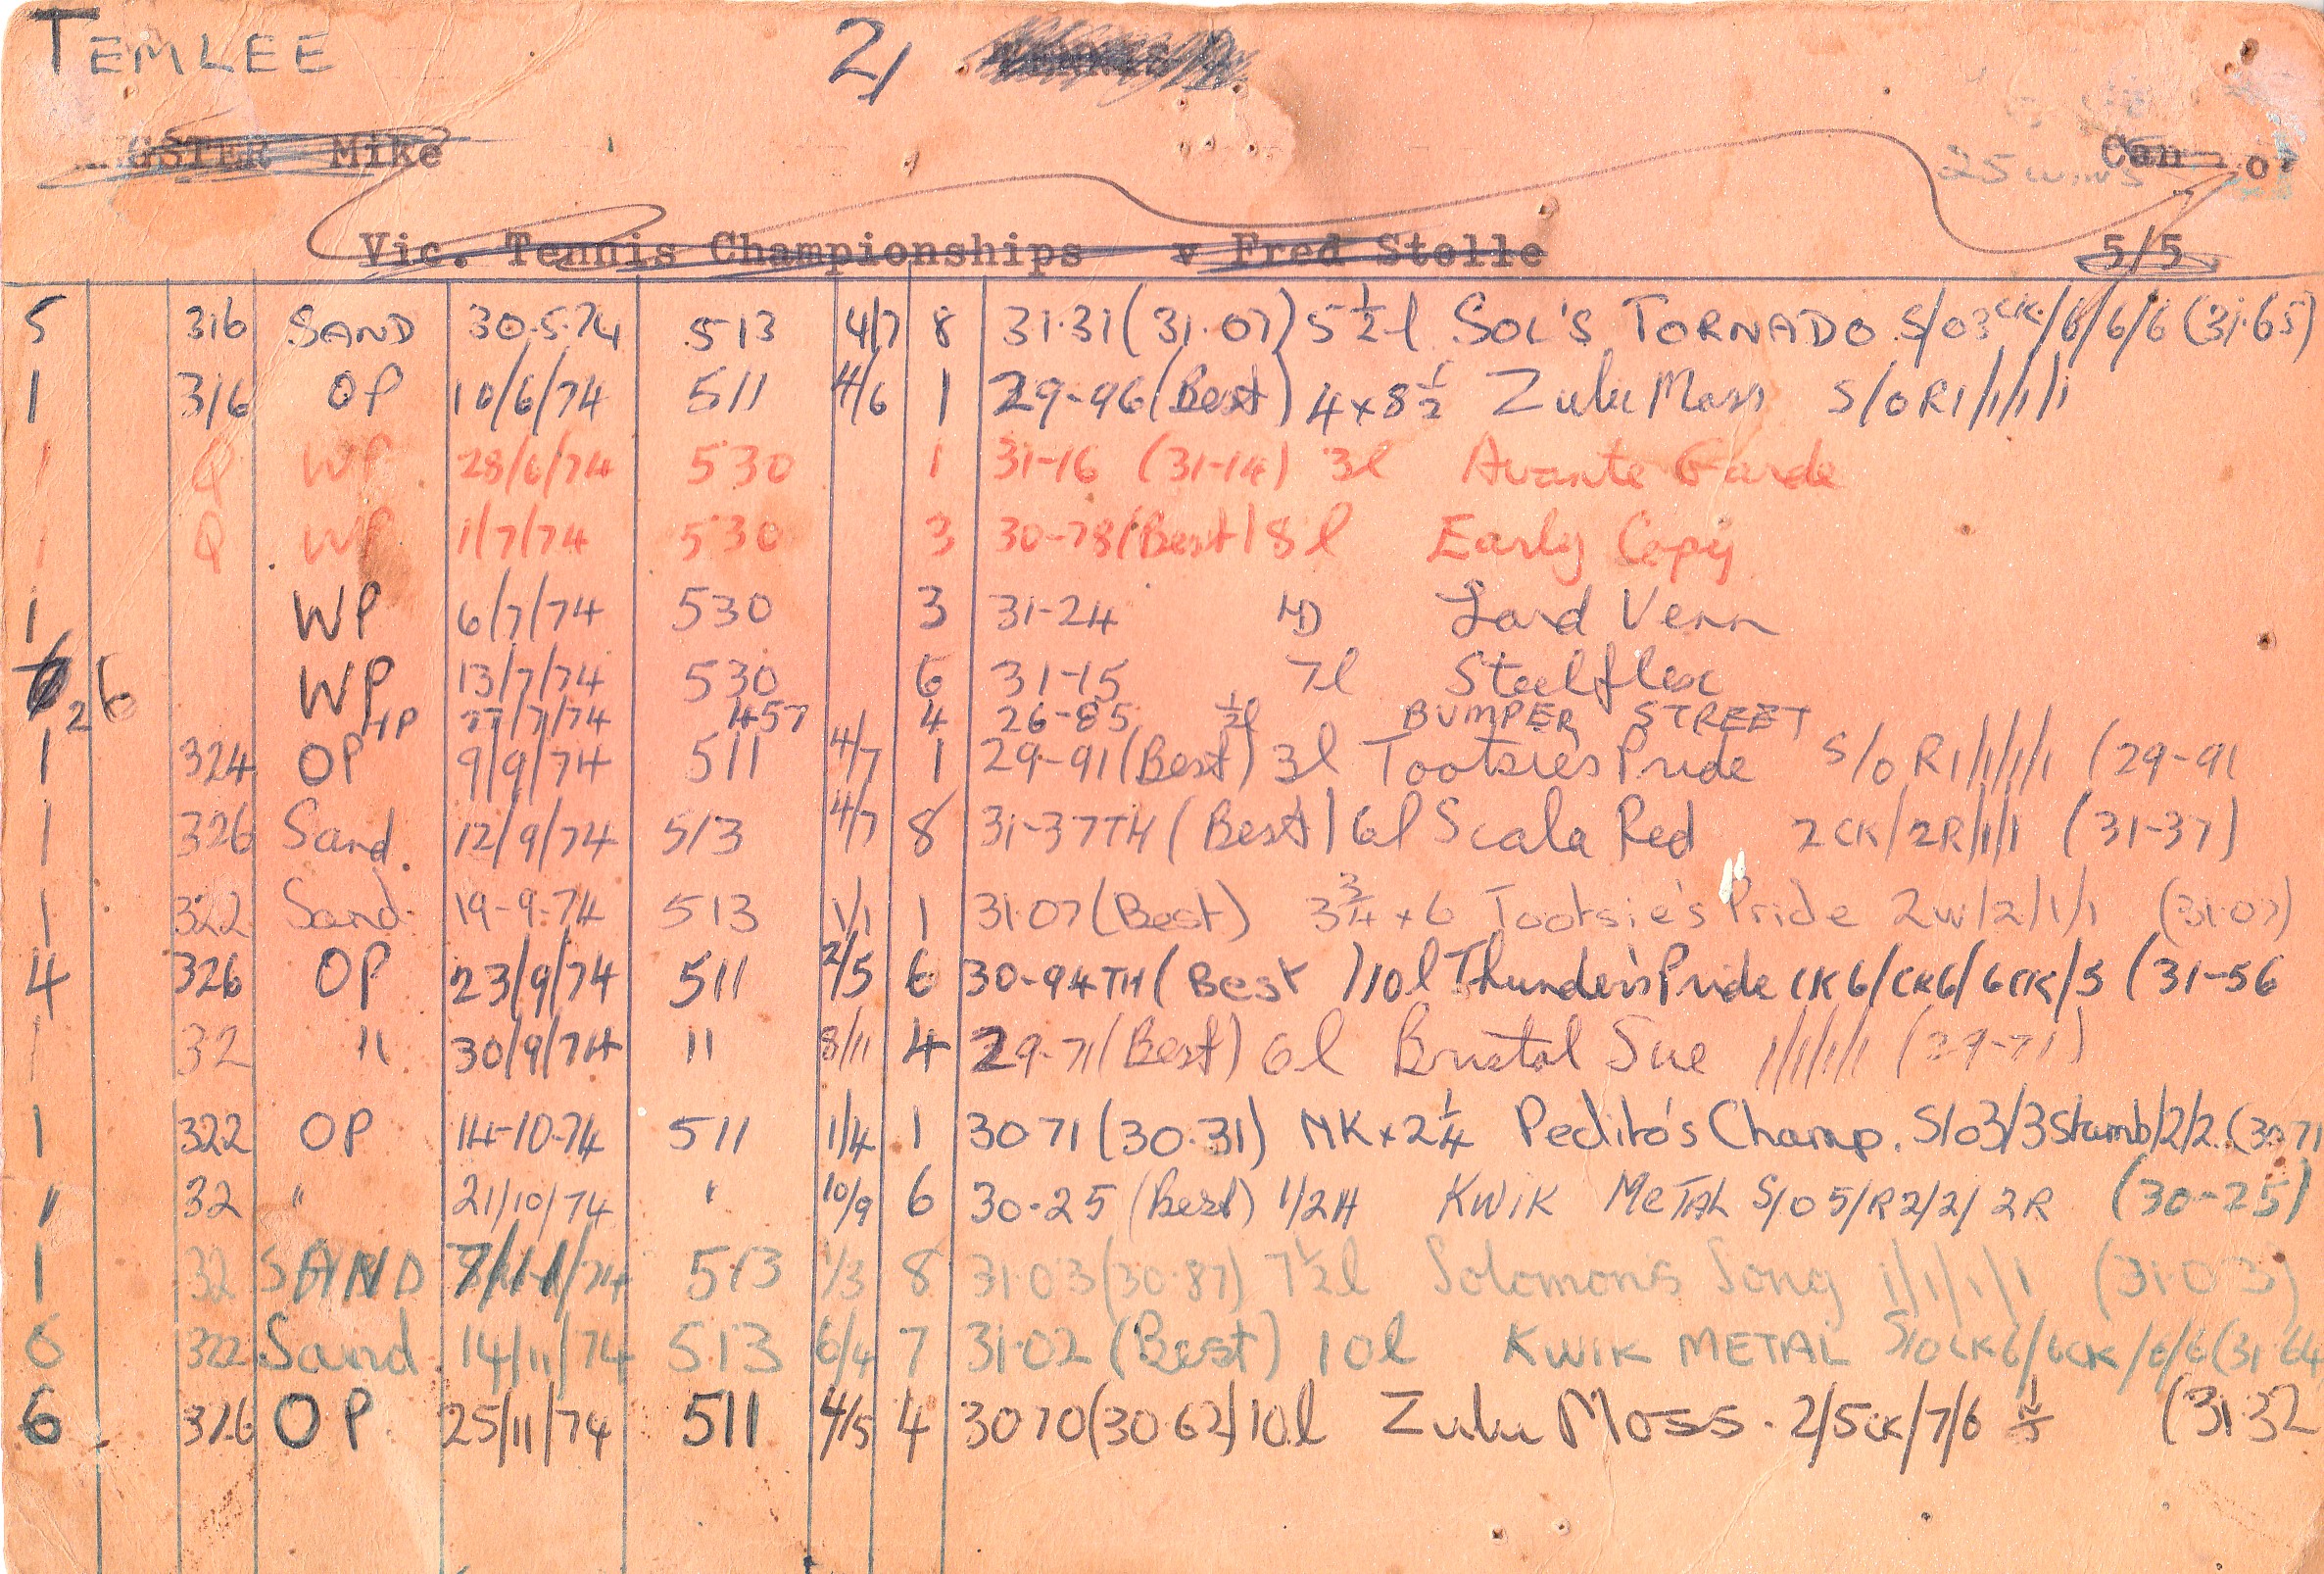 TEMLEE 2/
GSTER Mike 25 wins Can
Vic. Tennis Championships v Fred Stolle 5/5
5 316 SAND 30.5.74 513 4/7 8 31.31 (31.07) 5½l SOL'S TORNADO S/O3CK/6/6/6 (31.65)
1 316 OP 10/6/74 511 4/6 1 29-96 (Best) 4x8½ Zulu Moss S/OR1/1/1/1
1 Q WP 28/6/74 530 1 31-16 (31-14) 3l Avante Garde
1 Q WP 1/7/74 530 3 30-78 (Best) 8l Early Copy
1 WP 6/7/74 530 3 31-24 HD Lord Venn
6 6 WP 13/7/74 530 6 31-15 7l Steelflex
2 HP 27/7/74 457 4 26-85 ½l BUMPER STREET
1 324 OP 9/9/74 511 4/7 1 29-91 (Best) 3l Tootsie's Pride S/OR1/1/1/1 (29-91
1 326 Sand. 12/9/74 513 4/7 8 31-37TH (Best) 6l Scala Red 2CK/2R/1/1 (31-37)
1 322 Sand. 19-9-74 513 1/1 1 31.07 (Best) 3¾x6 Tootsie's Pride 2w/2/1/1 (31.07)
4 326 OP 23/9/74 511 2/5 6 30-94TH (Best) 10l Thunderin Pride CK6/CK6/6CK/5 (31-56
1 32 " 30/9/74 11 8/11 4 29-71 (Best) 6l Bristol Sue 1/1/1/1 (29-71)
1 322 OP 14-10-74 511 1/4 1 30 71 (30.31) NKx2¼ Pedito's Champ. S/O3/3Stumb/2/2. (30 71
1 32 " 21/10/74 " 10/9 6 30-25 (Best) 1/2H KWIK METAL S/O5/R2/2/2R (30-25)
1 32 SAND 7/11/74 513 1/3 8 31.03 (30.87) 7½l Solomons Song 1/1/1/1 (31.03)
6 322 Sand. 14/11/74 513 6/4 7 31.02 (Best) 10l KWIK METAL S/OCK6/6CK/6/6 (31 64
6 326 OP 25/11/74 511 4/5 4 30 70 (30.62) 10l Zulu Moss. 2/5CK/7/6 (31.32